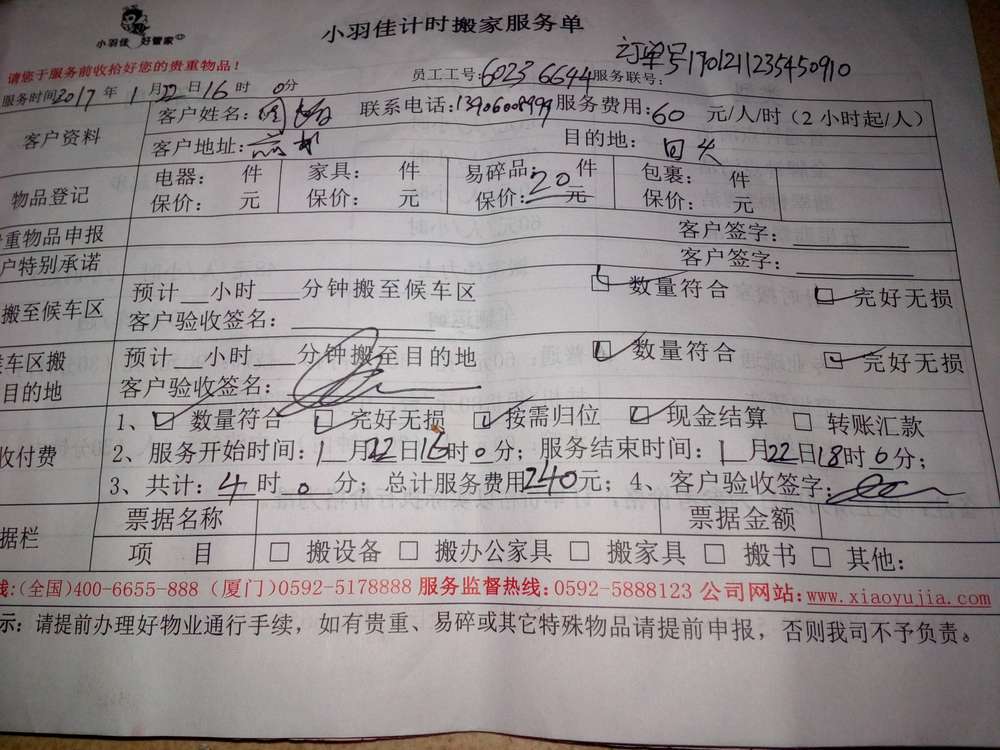 小羽佳 好管家
小羽佳计时搬家服务单
请您于服务前收拾好您的贵重物品！
订单号1701211235450910
员工工号：6023 6644 服务联号：
服务时间2017年1月22日16时0分
客户资料
客户姓名： 联系电话：13906008999 服务费用：60元/人/时（2小时起/人）
客户地址： 目的地：
物品登记
电器： 件 家具： 件 易碎品： 件 包裹： 件
保价： 元 保价： 元 保价：20元 保价： 元
贵重物品申报 客户签字：
户特别承诺 客户签字：
搬至候车区
预计__小时___分钟搬至候车区 ☑数量符合 ☑完好无损
客户验收签名：
候车区搬
目的地
预计__小时___分钟搬至目的地 ☑数量符合 ☑完好无损
客户验收签名：
收付费
1、☑数量符合 ☑完好无损 ☑按需归位 ☑现金结算 □转账汇款
2、服务开始时间：1月22日16时0分；服务结束时间：1月22日18时0分；
3、共计：4时0分；总计服务费用240元；4、客户验收签字：
据栏
票据名称 票据金额
项 目 □搬设备 □搬办公家具 □搬家具 □搬书 □其他：
线：(全国)400-6655-888 (厦门)0592-5178888 服务监督热线：0592-5888123 公司网站：www.xiaoyujia.com
示：请提前办理好物业通行手续，如有贵重、易碎或其它特殊物品请提前申报，否则我司不予负责。